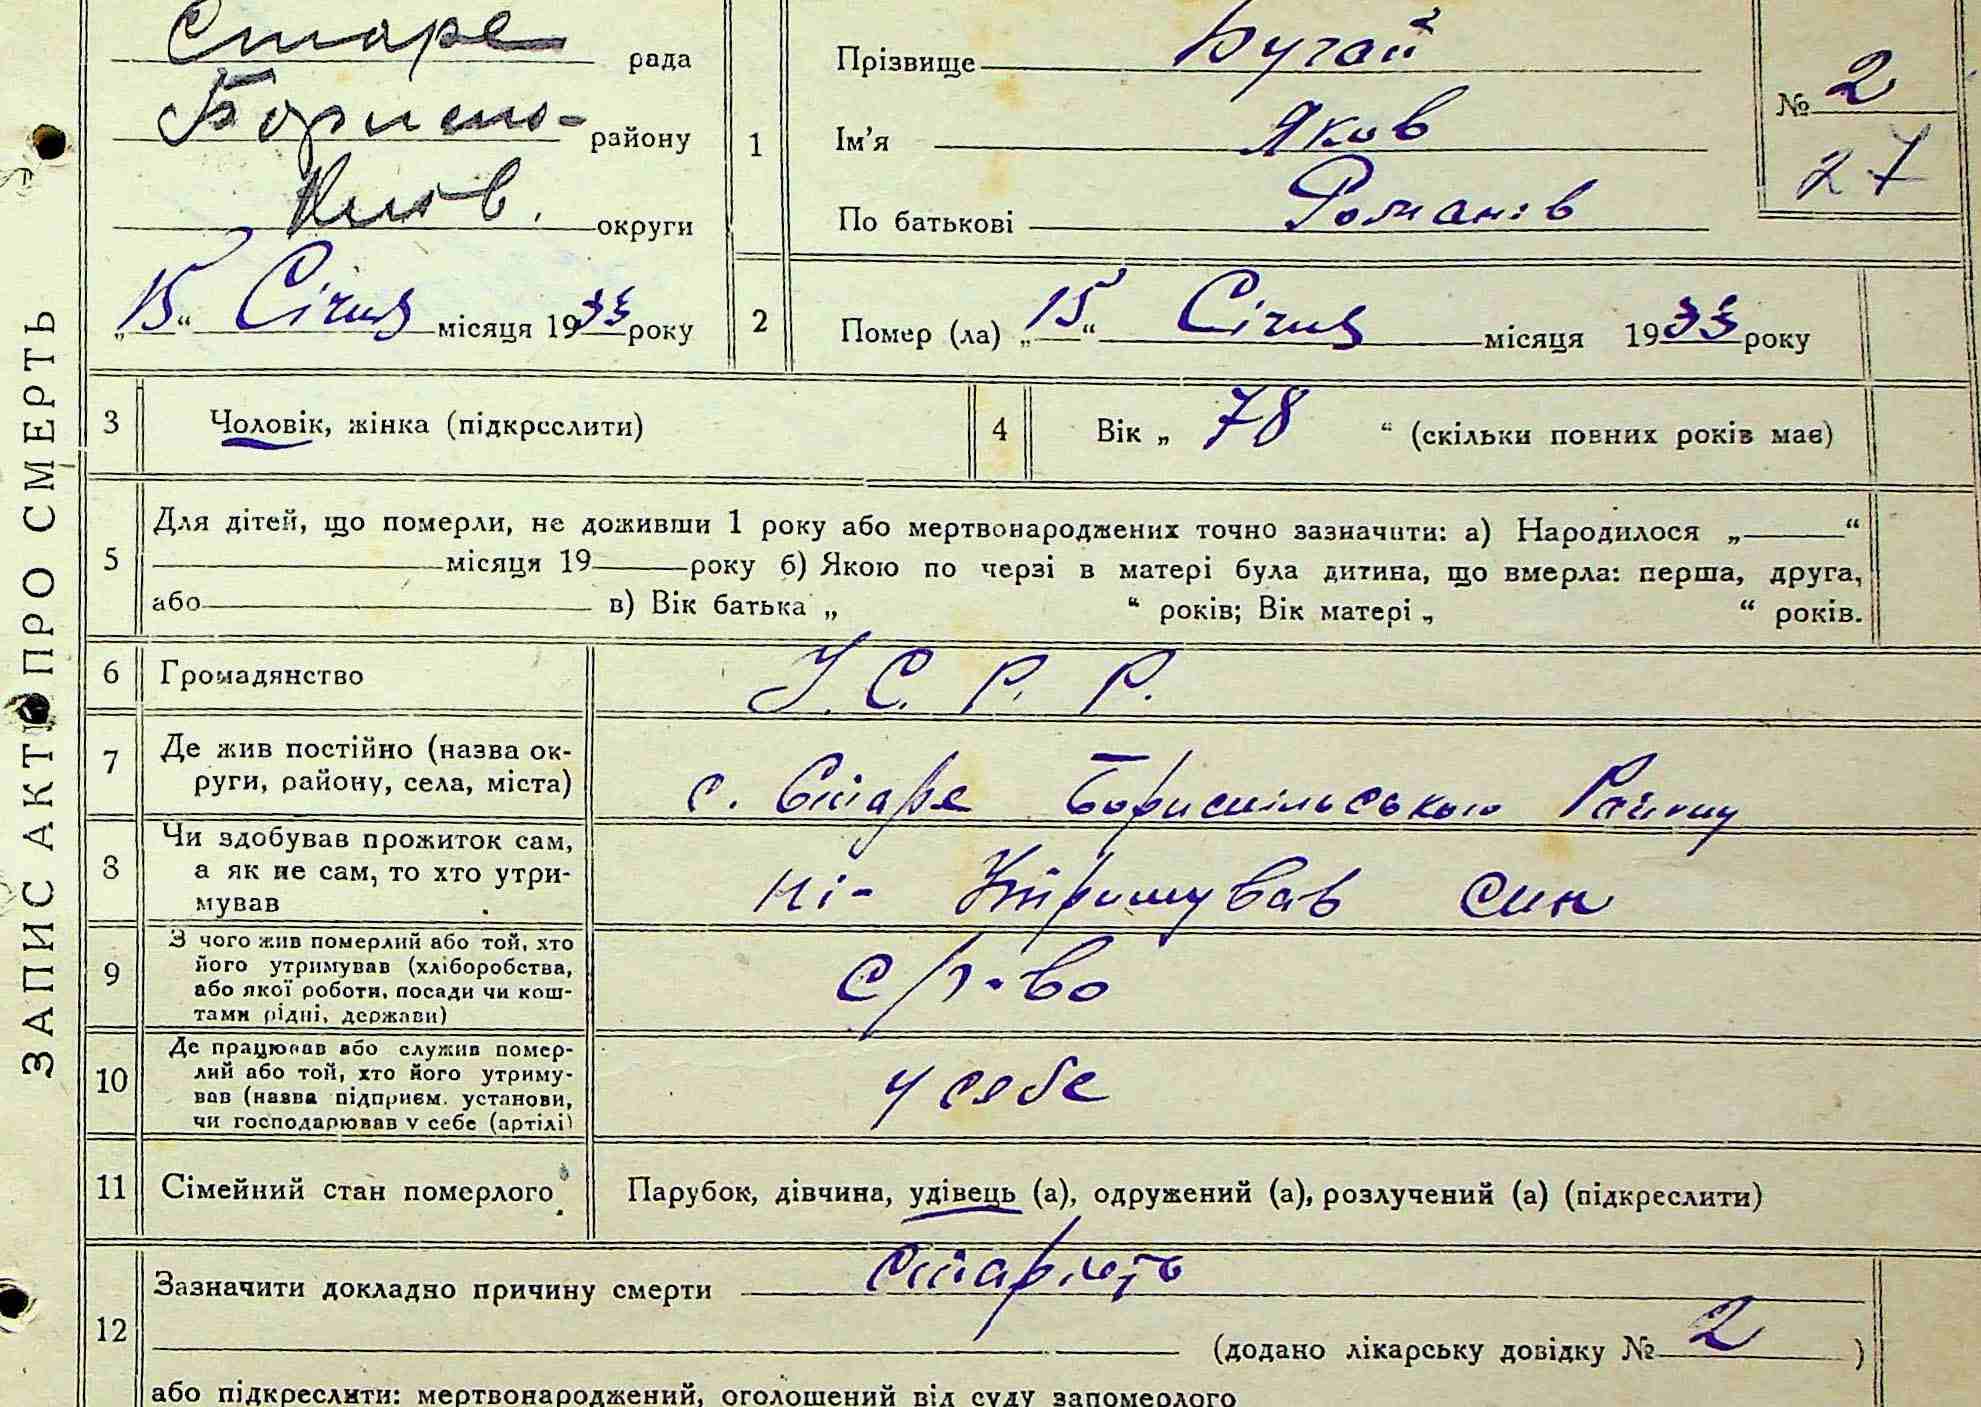 ЗАПИС АКТУ ПРО СМЕРТЬ
Старе рада
району
Київ. округи
„15“ Січня місяця 1933 року
1
Прізвище Бугай
Ім’я Яков
По батькові Романів
№ 2
27
2
Помер (ла) „15“ Січня місяця 1933 року
3 Чоловік, жінка (підкреслити)
4 Вік „ 78 “ (скільки повних років має)
5
Для дітей, що померли, не доживши 1 року або мертвонароджених точно зазначити: а) Народилося „ “
місяця 19 року б) Якою по черзі в матері була дитина, що вмерла: перша, друга,
або в) Вік батька „ “ років; Вік матері „ “ років.
6 Громадянство У. С. Р. Р.
7 Де жив постійно (назва ок-
руги, району, села, міста)
с. Старе Бориспільського Району
8 Чи здобував прожиток сам,
а як не сам, то хто утри-
мував
ні- Утримував син
9 З чого жив померлий або той, хто
його утримував (хліборобства,
або якої роботи, посади чи кош-
тами рідні, держави)
с/г-во
10 Де працював або служив помер-
лий або той, хто його утриму-
вав (назва підприєм. установи,
чи господарював у себе (артілі)
у себе
11 Сімейний стан померлого Парубок, дівчина, удівець (а), одружений (а), розлучений (а) (підкреслити)
12
Зазначити докладно причину смерти старість
(додано лікарську довідку № 2 )
або підкреслити: мертвонароджений, оголошений від суду запомерлого